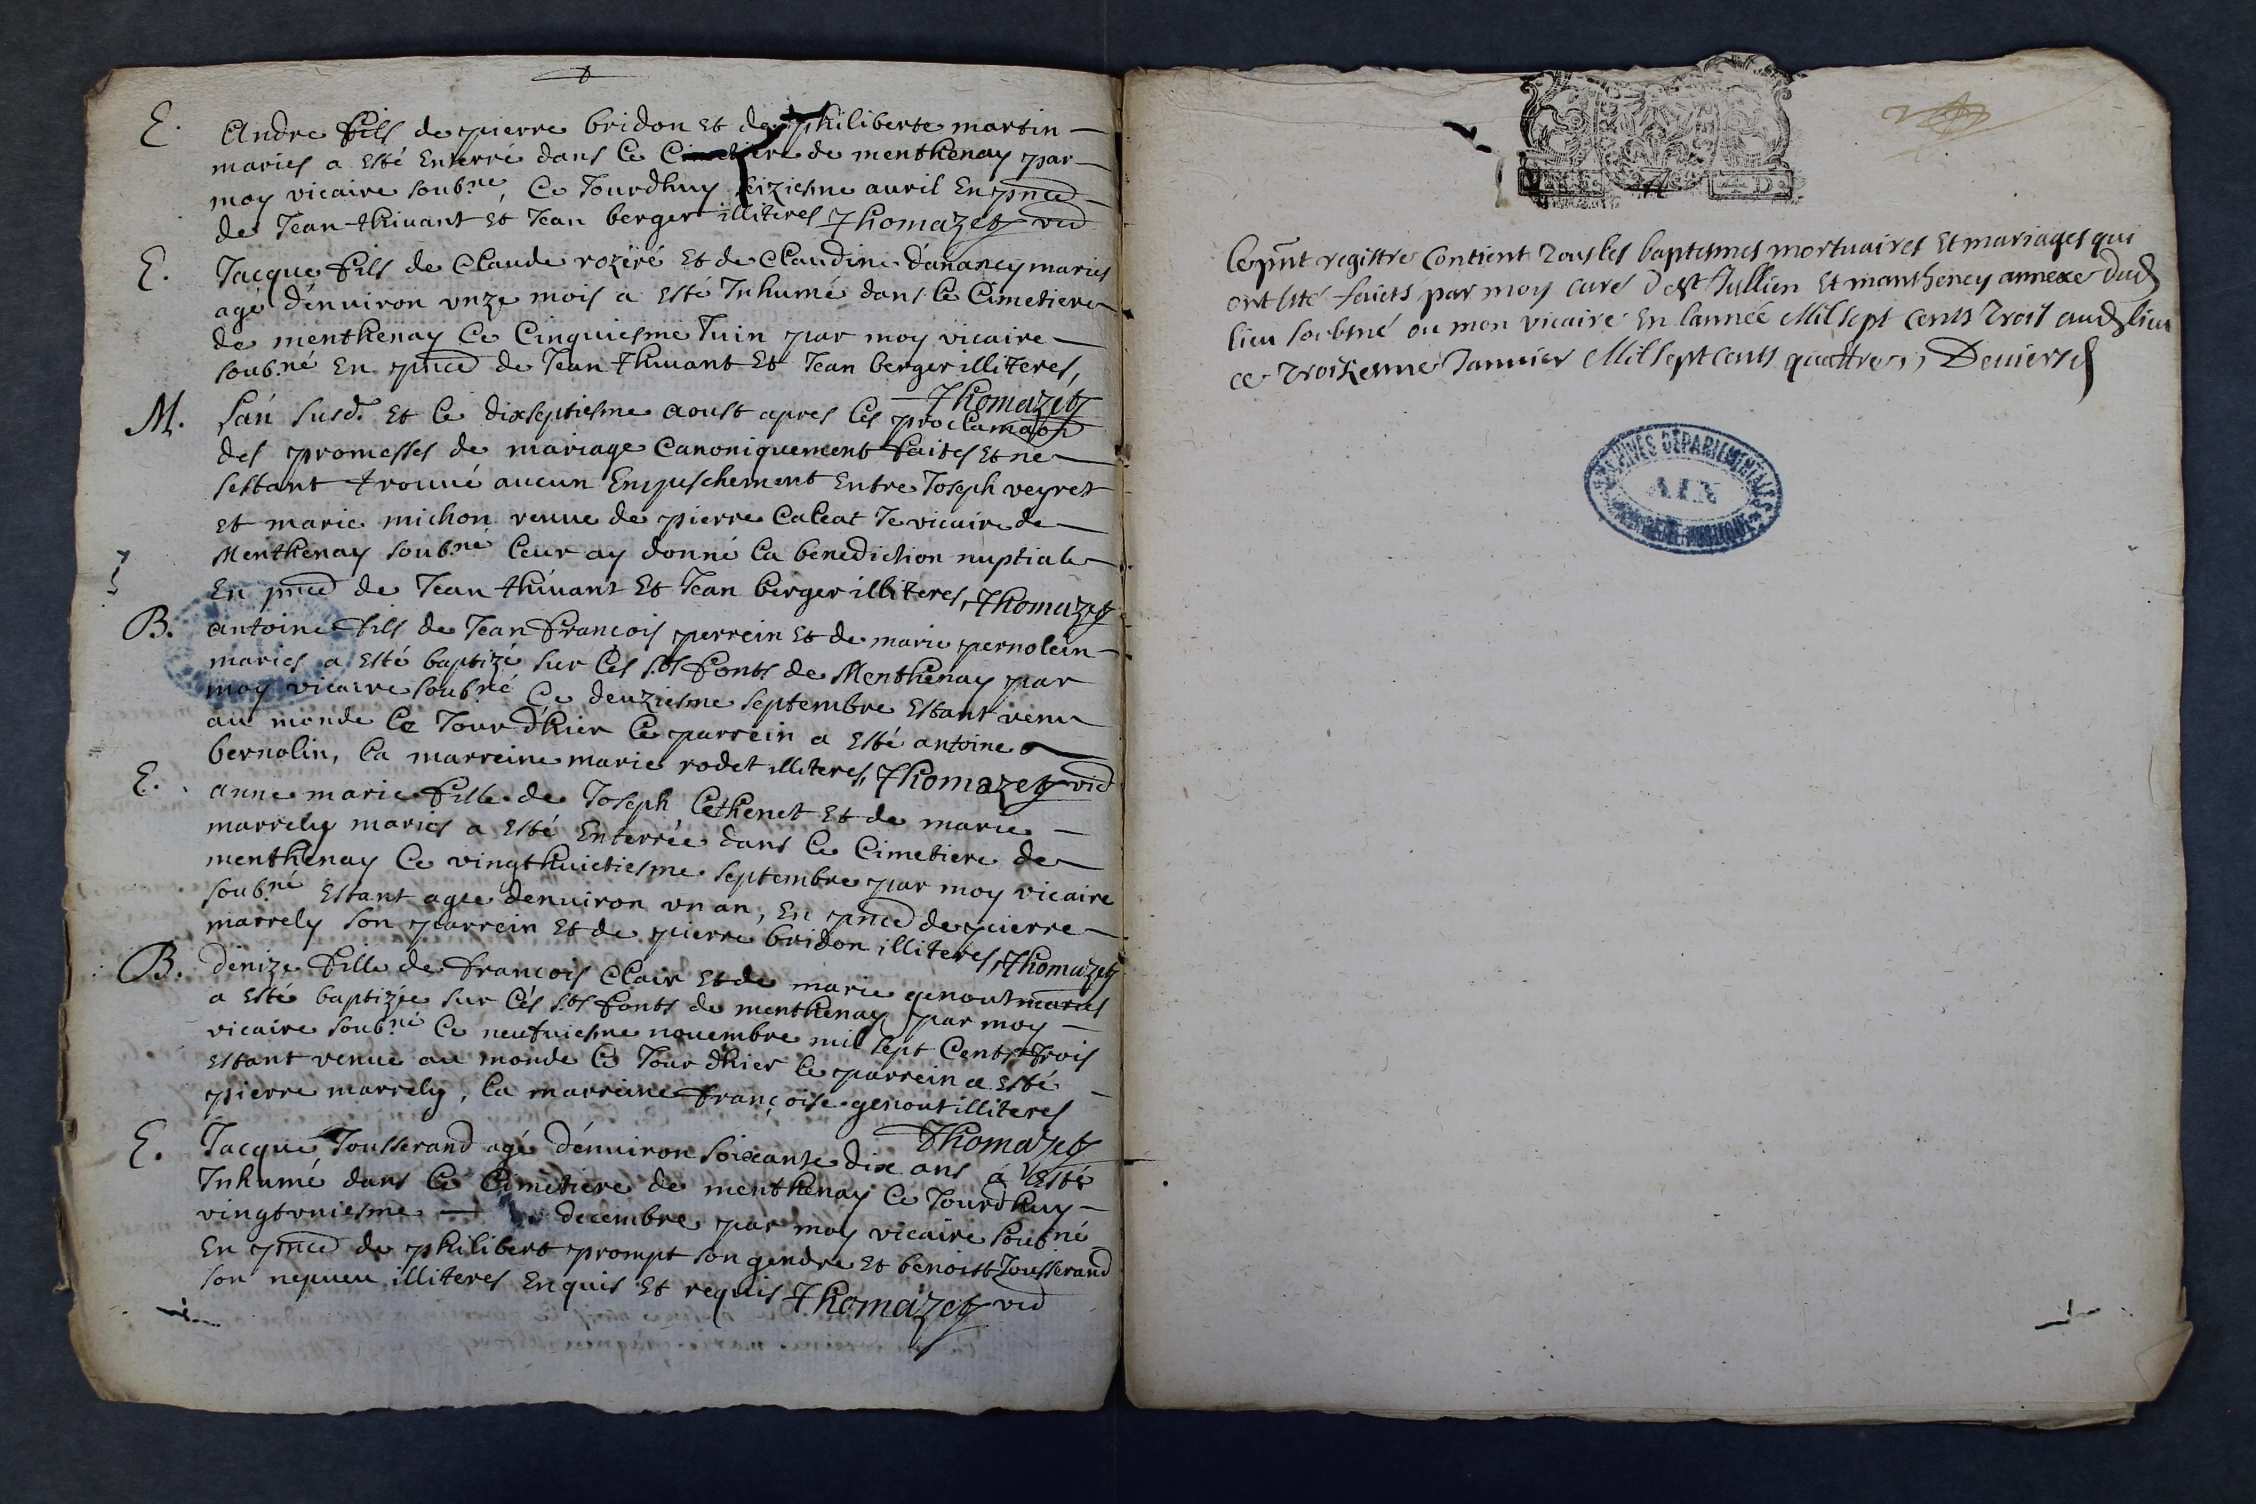 E. Andre fils de pierre bridon et de philiberte martin
maries a esté Enterré dans le Cimetiere de menthenay par
moy vicaire soub.né, Ce Jourdhuy seiziesme auril En pnce
de Jean thiuant et Jean berger illiteres Thomazet vic
E. Jacque fils de Claude roziré et de Claudine dánancy maries
agé dénuiron vnze mois a esté Inhumé dans le Cimetiere
de menthenay Ce Cinquiesme Juin par moy vicaire
soub.né En pnce de Jean thiuant Et Jean berger illiteres,
Thomazet
M. Lan susd. et le dixseptiesme aoust apres les proclamaon
des promesses de mariage Canoniquement faites et ne
sestant trouué aucun Empeschement Entre Joseph veyret
et marie michon veuue de pierre Caleat Je vicaire de
Menthenay soub.né leur ay donné la benediction nuptiale
En pnce de Jean thiuant Et Jean berger illiteres, Thomazet
B. antoine fils de Jean francois perrein et de marie pernolein
maries a esté baptizé sur lés sts fonts de Menthenay par
moy vicaire soubné Ce deuziesme septembre Estant venu
au monde le Jour dhier le parrein a esté antoine
bernolin, la marreine marie rodet illiteres, Thomazet vic
E. anne marie fille de Joseph Cethenet et de marie
marrely maries a esté Enterrée dans le Cimetiere de
menthenay Ce vingthuictiesme septembre par moy vicaire
soub.né Estant agee denuiron vn an, En pnce de pierre
marrely son parrein et de pierre bridon illiteres, Thomazet
B. denize fille de francois Clair et de marie genout maries
a esté baptizée sur lés sts fonts de menthenay par moy
vicaire soub.né Ce neufuiesme nouembre mil sept Cents trois
Estant venue au monde le Jour dhier le parrein a esté
pierre marrely, la marreine françoise genout illiteres
Thomazet
E. Jacque Jousserand agé dénuiron soixante dix ans á Esté
Inhumé dans le Cimetiere de menthenay Ce Jourdhuy
vingtvniesme decembre par moy vicaire soubné
En pnce de philibert prompt son gendre et benoist Jousserand
son nepueu illiteres Enquis et requis Thomazet vic
le pnt registre Contient Tous les baptesmes mortuaires et mariages qui
ont esté faicts par moy curé de st Jullien et mantheney annexe dud
lieu soubsné ou mon vicaire en lannée Mil sept cents Trois aud lieu
ce Troisiesme Januier Mil sept cents quattre,, Deuiers
ARCHIVES DÉPARTEMENTALES
AIN